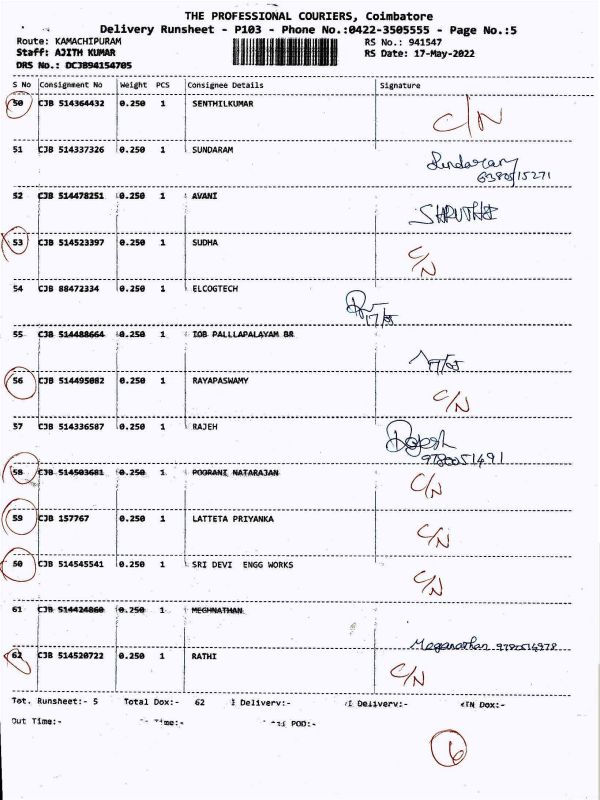 THE PROFESSIONAL COURIERS, Coimbatore
Delivery Runsheet - P103 - Phone No.:0422-3505555 - Page No.:5
Route: KAMACHIPURAM RS No.: 941547
Staff: AJITH KUMAR RS Date: 17-May-2022
DRS No.: DCJB94154705
S No Consignment No Weight PCS Consignee Details Signature
50 CJB 514364432 0.250 1 SENTHILKUMAR C/N
51 CJB 514337326 0.250 1 SUNDARAM Sundaram
52 CJB 514478251 0.250 1 AVANI SHRUTHI
53 CJB 514523397 0.250 1 SUDHA C/N
54 CJB 88472334 0.250 1 ELCOGTECH
17/05
55 CJB 514488664 0.250 1 IOB PALLLAPALAYAM BR
17/05
56 CJB 514495082 0.250 1 RAYAPASWAMY C/N
57 CJB 514336587 0.250 1 RAJEH Rajesh
58 CJB 514503681 0.250 1 POORANI NATARAJAN C/N
59 CJB 157767 0.250 1 LATTETA PRIYANKA C/N
50 CJB 514545541 0.250 1 SRI DEVI ENGG WORKS C/N
61 CJB 514424860 0.250 1 MEGHNATHAN Meganathan
62 CJB 514520722 0.250 1 RATHI C/N
Tot. Runsheet:- 5 Total Dox:- 62 Delivery:- Delivery:- Dox:-
Out Time:- Time:- POD:-
6